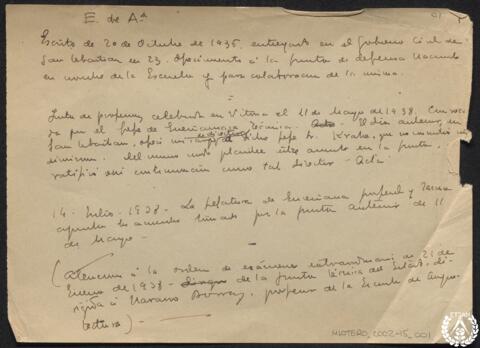 E. de A.ª
Escrito de 20 de Octubre de 1936, entregado en el Gobierno Civil de
San Sebastian en 23. Ofrecimiento á la Junta de defensa Nacional
en nombre de la Escuela y para colaboracion de la misma.
Junta de profesores, celebrada en Vitoria el 11 de Mayo de 1938. Convoca
da por el Jefe de Enseñanza Técnica. El dia anterior, en
San Sebastian, dicho Jefe Sr. Krahe, que no
dimision. del mismo modo este asunto en la Junta,
ratificó mi como tal director - Acta
14 - Julio - 1938 - La Jefatura de Enseñanza profesional y Tecnica
aprueba los acuerdos tomados por la Junta anterior de 11
de Mayo -
(Atencion á la orden de exámenes extraordinarios de 21 de
Enero de 1938 - de la Junta técnica del Estado, di
rigida á Navarro Borrás, profesor de la Escuela de Arqui
tectura) -
MLOTERO_2002-15_001